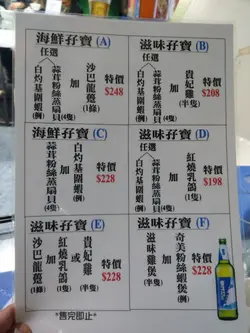 海鮮孖寶 (A)
任選
白灼基圍蝦(例)
蒜茸粉絲蒸扇貝(4隻)
加
沙巴龍躉(1條)
特價
$248
滋味孖寶 (B)
任選
白灼基圍蝦(例)
蒜茸粉絲蒸扇貝(4隻)
加
貴妃雞(半隻)
特價
$208
海鮮孖寶 (C)
蒜茸粉絲蒸扇貝(4隻)
加
白灼基圍蝦(例)
特價
$228
滋味孖寶 (D)
任選
白灼基圍蝦(例)
蒜茸粉絲蒸扇貝(4隻)
加
紅燒乳鴿(1隻)
特價
$198
滋味孖寶 (E)
沙巴龍躉(1條)
加
紅燒乳鴿(1隻)
或
貴妃雞(半隻)
特價
$228
滋味孖寶 (F)
滋味雞煲(例)
加
奇美粉絲蝦煲(例)
特價
$228
*售完即止*